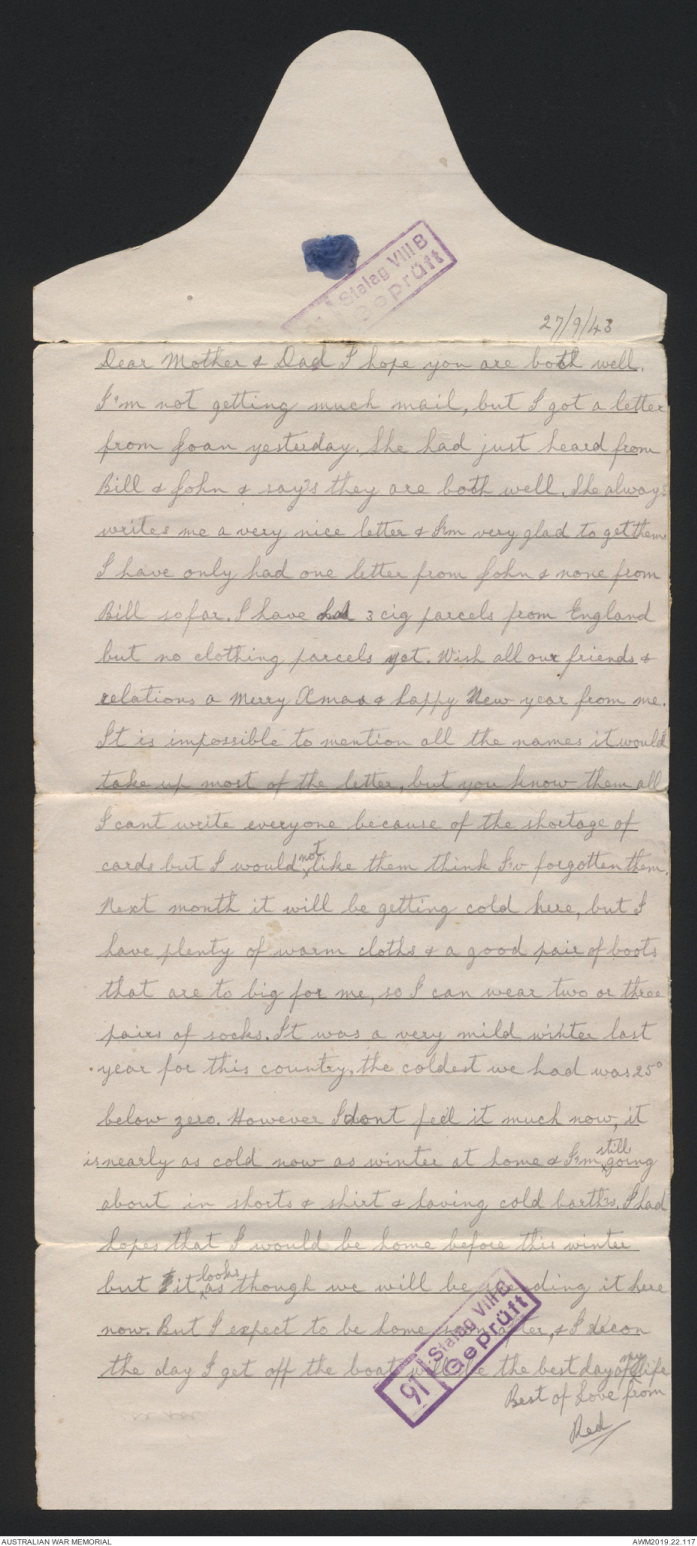 Stalag VIII B
Geprüft
27/9/43
Dear Mother & Dad I hope you are both well.
I'm not getting much mail, but I got a letter
from Joan yesterday. She had just heard from
Bill & John & say's they are both well. She always
writes me a very nice letter & I'm very glad to get them
I have only had one letter from John & none from
Bill so far. I have had 3 cig parcels from England
but no clothing parcels yet. Wish all our friends &
relations a Merry Xmas & happy New year from me.
It is impossible to mention all the names it would
take up most of the letter, but you know them all
I cant write everyone because of the shortage of
cards but I would not like them think I'v forgotten them.
Next month it will be getting cold here, but I
have plenty of warm cloths & a good pair of boots
that are to big for me, so I can wear two or three
pairs of socks. It was a very mild winter last
year for this country, the coldest we had was 25°
below zero. However I dont feel it much now, it
is nearly as cold now as winter at home & I'm still going
about in shorts & shirt & having cold barth's. I had
hopes that I would be home before this winter
but it looks as though we will be spending it here
now. But I expect to be home & I
the day I get off the boat will be the best day of my life
Best of Love from
Red
91
Stalag VIII B
Geprüft
AUSTRALIAN WAR MEMORIAL
AWM2019.22.117